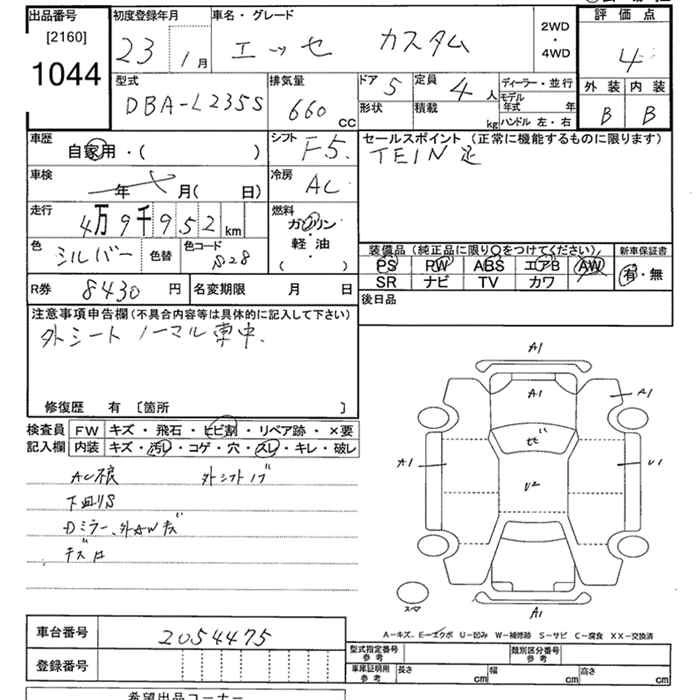 出品番号
[2160]
1044
初度登録年月
23 1月
車名・グレード
エッセ カスタム
2WD
・
4WD
評価点
4
外装 内装
B B
型式
DBA-L235S
排気量
660 CC
ドア 5
形状
定員 4 人
積載 kg
ディーラー・並行
モデル年式 年
ハンドル 左・右
車歴
自家用・( )
シフト
F5
セールスポイント(正常に機能するものに限ります)
TEIN 足
車検
年 月( 日)
冷房
AC
走行
4万9千952 km
燃料
ガソリン
・
軽油
( )
色
シルバー
色替
色コード
S28
装備品(純正品に限り○をつけてください)
PS PW ABS エアB AW
SR ナビ TV カワ
新車保証書
有・無
R券 8430 円
名変期限 月 日
後日品
注意事項申告欄(不具合内容等は具体的に記入して下さい)
外シート ノーマル車中.
修復歴 有 〔箇所 〕
検査員
記入欄
FW キズ・飛石・ヒビ割・リペア跡・×要
内装 キズ・汚レ・コゲ・穴・スレ・キレ・破レ
AC不良 外シフトノブ
下廻りS
Dミラー、外AWキズ
A1
A1
A1
A1
ヒビ
U2
U1
A1
スマ
A-キズ、E-エクボ U-凹み W-補修跡 S-サビ C-腐食 XX-交換済
車台番号 2054475
登録番号
型式指定番号
参考
類別区分番号
参考
車庫証明用
参考
長さ cm 幅 cm 高さ cm
希望出品コーナー